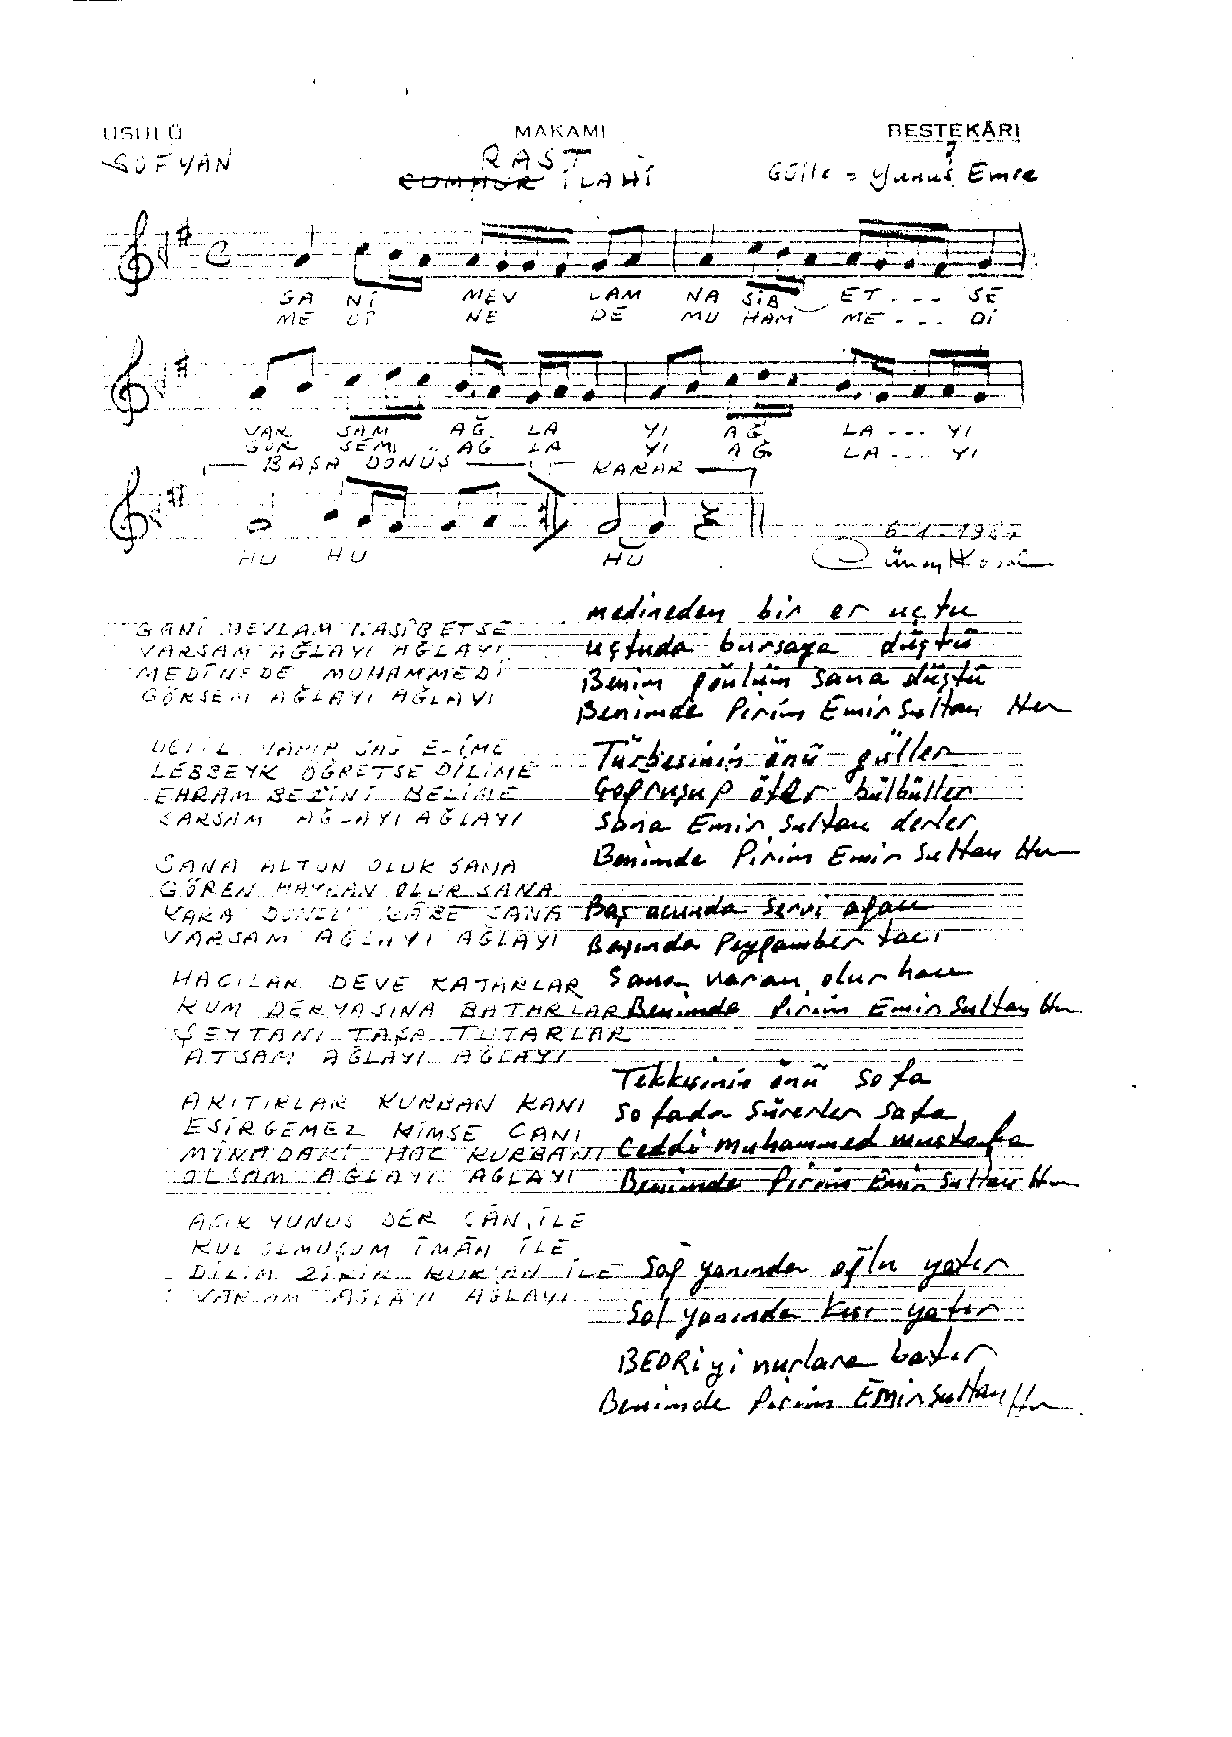 USULÜ MAKAMI BESTEKÂRI
SOFYAN RAST Güfte = Yunus Emre
CUMHUR İLAHİ
GA Nİ MEV LAM NA SİB ET . . . SE
ME Dİ NE DE MU HAM ME . . . Dİ
VAR SAM AĞ LA YI AĞ LA . . . YI
GÖR SEM AĞ LA YI AĞ LA . . . YI
BAŞA DÖNÜŞ KARAR
HU HU HU
6-1-19
GANİ MEVLAM NASİB ETSE
VARSAM AĞLAYI AĞLAYI
MEDİNEDE MUHAMMEDİ
GÖRSEM AĞLAYI AĞLAYI
DELİL
LEBBEYK ÖĞRETSE DİLİME
EHRAM BEZİNİ BELİME
SARSAM AĞLAYI AĞLAYI
SANA ALTUN OLUK SANA
GÖREN HAYRAN OLUR SANA
KARA DONLU KÂBE SANA
VARSAM AĞLAYI AĞLAYI
HACILAR DEVE KATARLAR
KUM DERYASINA BATARLAR
ŞEYTANI TAŞA TUTARLAR
ATSAM AĞLAYI AĞLAYI
AKITIRLAR KURBAN KANI
ESİRGEMEZ KİMSE CANI
MİNADAKİ HAC KURBANI
OLSAM AĞLAYI AĞLAYI
AŞIK YUNUS DER CÂN İLE
KUL OLMUŞUM ÎMÂN İLE
DİLİM ZİKİR KUR'AN İLE
VARSAM AĞLAYI AĞLAYI
medineden bir er uçtu
uçtuda bursaya düştü
Benim gönlüm sana düştü
Benimde Pirim Emir Sultan Hu
Türbesinin önü güller
öter bülbüller
Sana Emir Sultan derler
Benimde Pirim Emir Sultan Hu
Baş ucunda servi ağacı
Başında Peygamber tacı
Sana varan olur hacı
Benimde Pirim Emir Sultan Hu
Tekkesinin önü sofa
Sofada sürerler safa
Ceddi Muhammed Mustafa
Benimde Pirim Emir Sultan Hu
Sağ yanında oğlu yatır
Sol yanında kızı yatır
BEDRi yi nurlara batır
Benimde Pirim Emir Sultan Hu